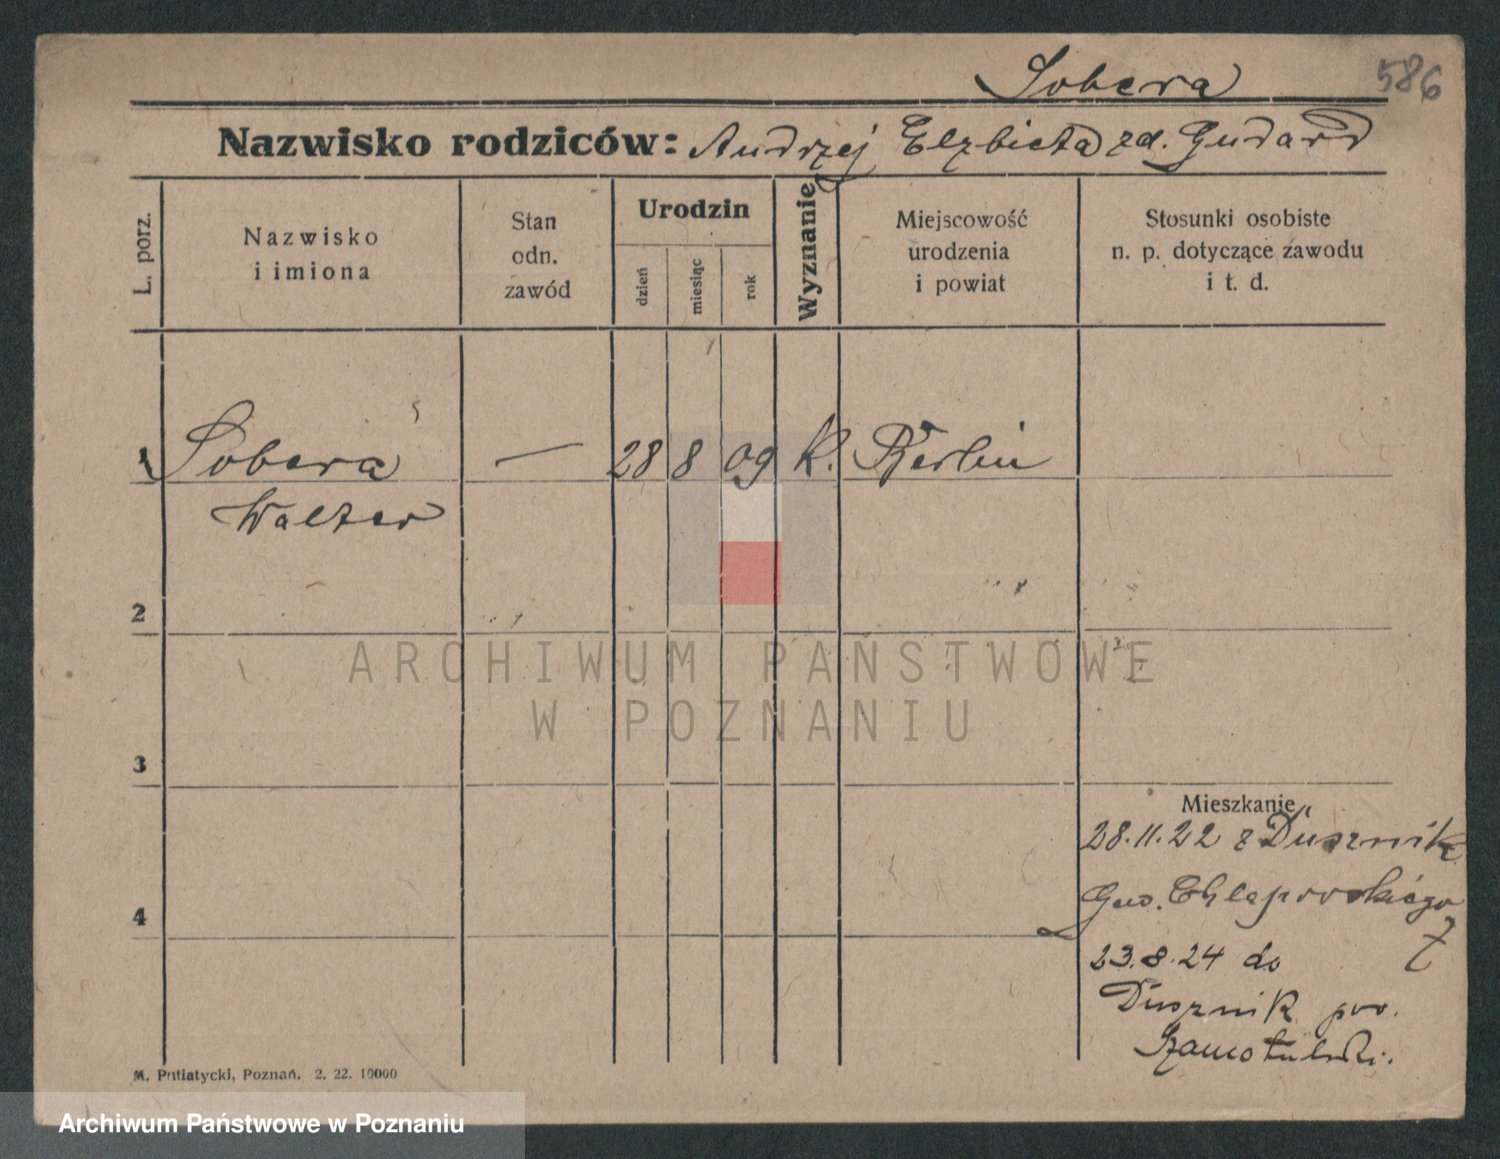 586
Sobera
Nazwisko rodziców: Andrzej Elzbieta zd. Gudard
L. porz.
Nazwisko
i imiona
Stan
odn.
zawód
Urodzin
dzień
miesiąc
rok
Wyznanie
Miejscowość
urodzenia
i powiat
Stosunki osobiste
n. p. dotyczące zawodu
i t. d.
1 Sobera — 28 8 09 K. Berlin
Walter
2
ARCHIWUM PAŃSTWOWE
W POZNANIU
3
Mieszkanie
28.11.22 z Dusznik
4
Gen. Chlapowskiego
7
23.8.24 do
Dusznik pow.
Szamotulski.
M. Putiatycki, Poznań. 2. 22. 10000
Archiwum Państwowe w Poznaniu